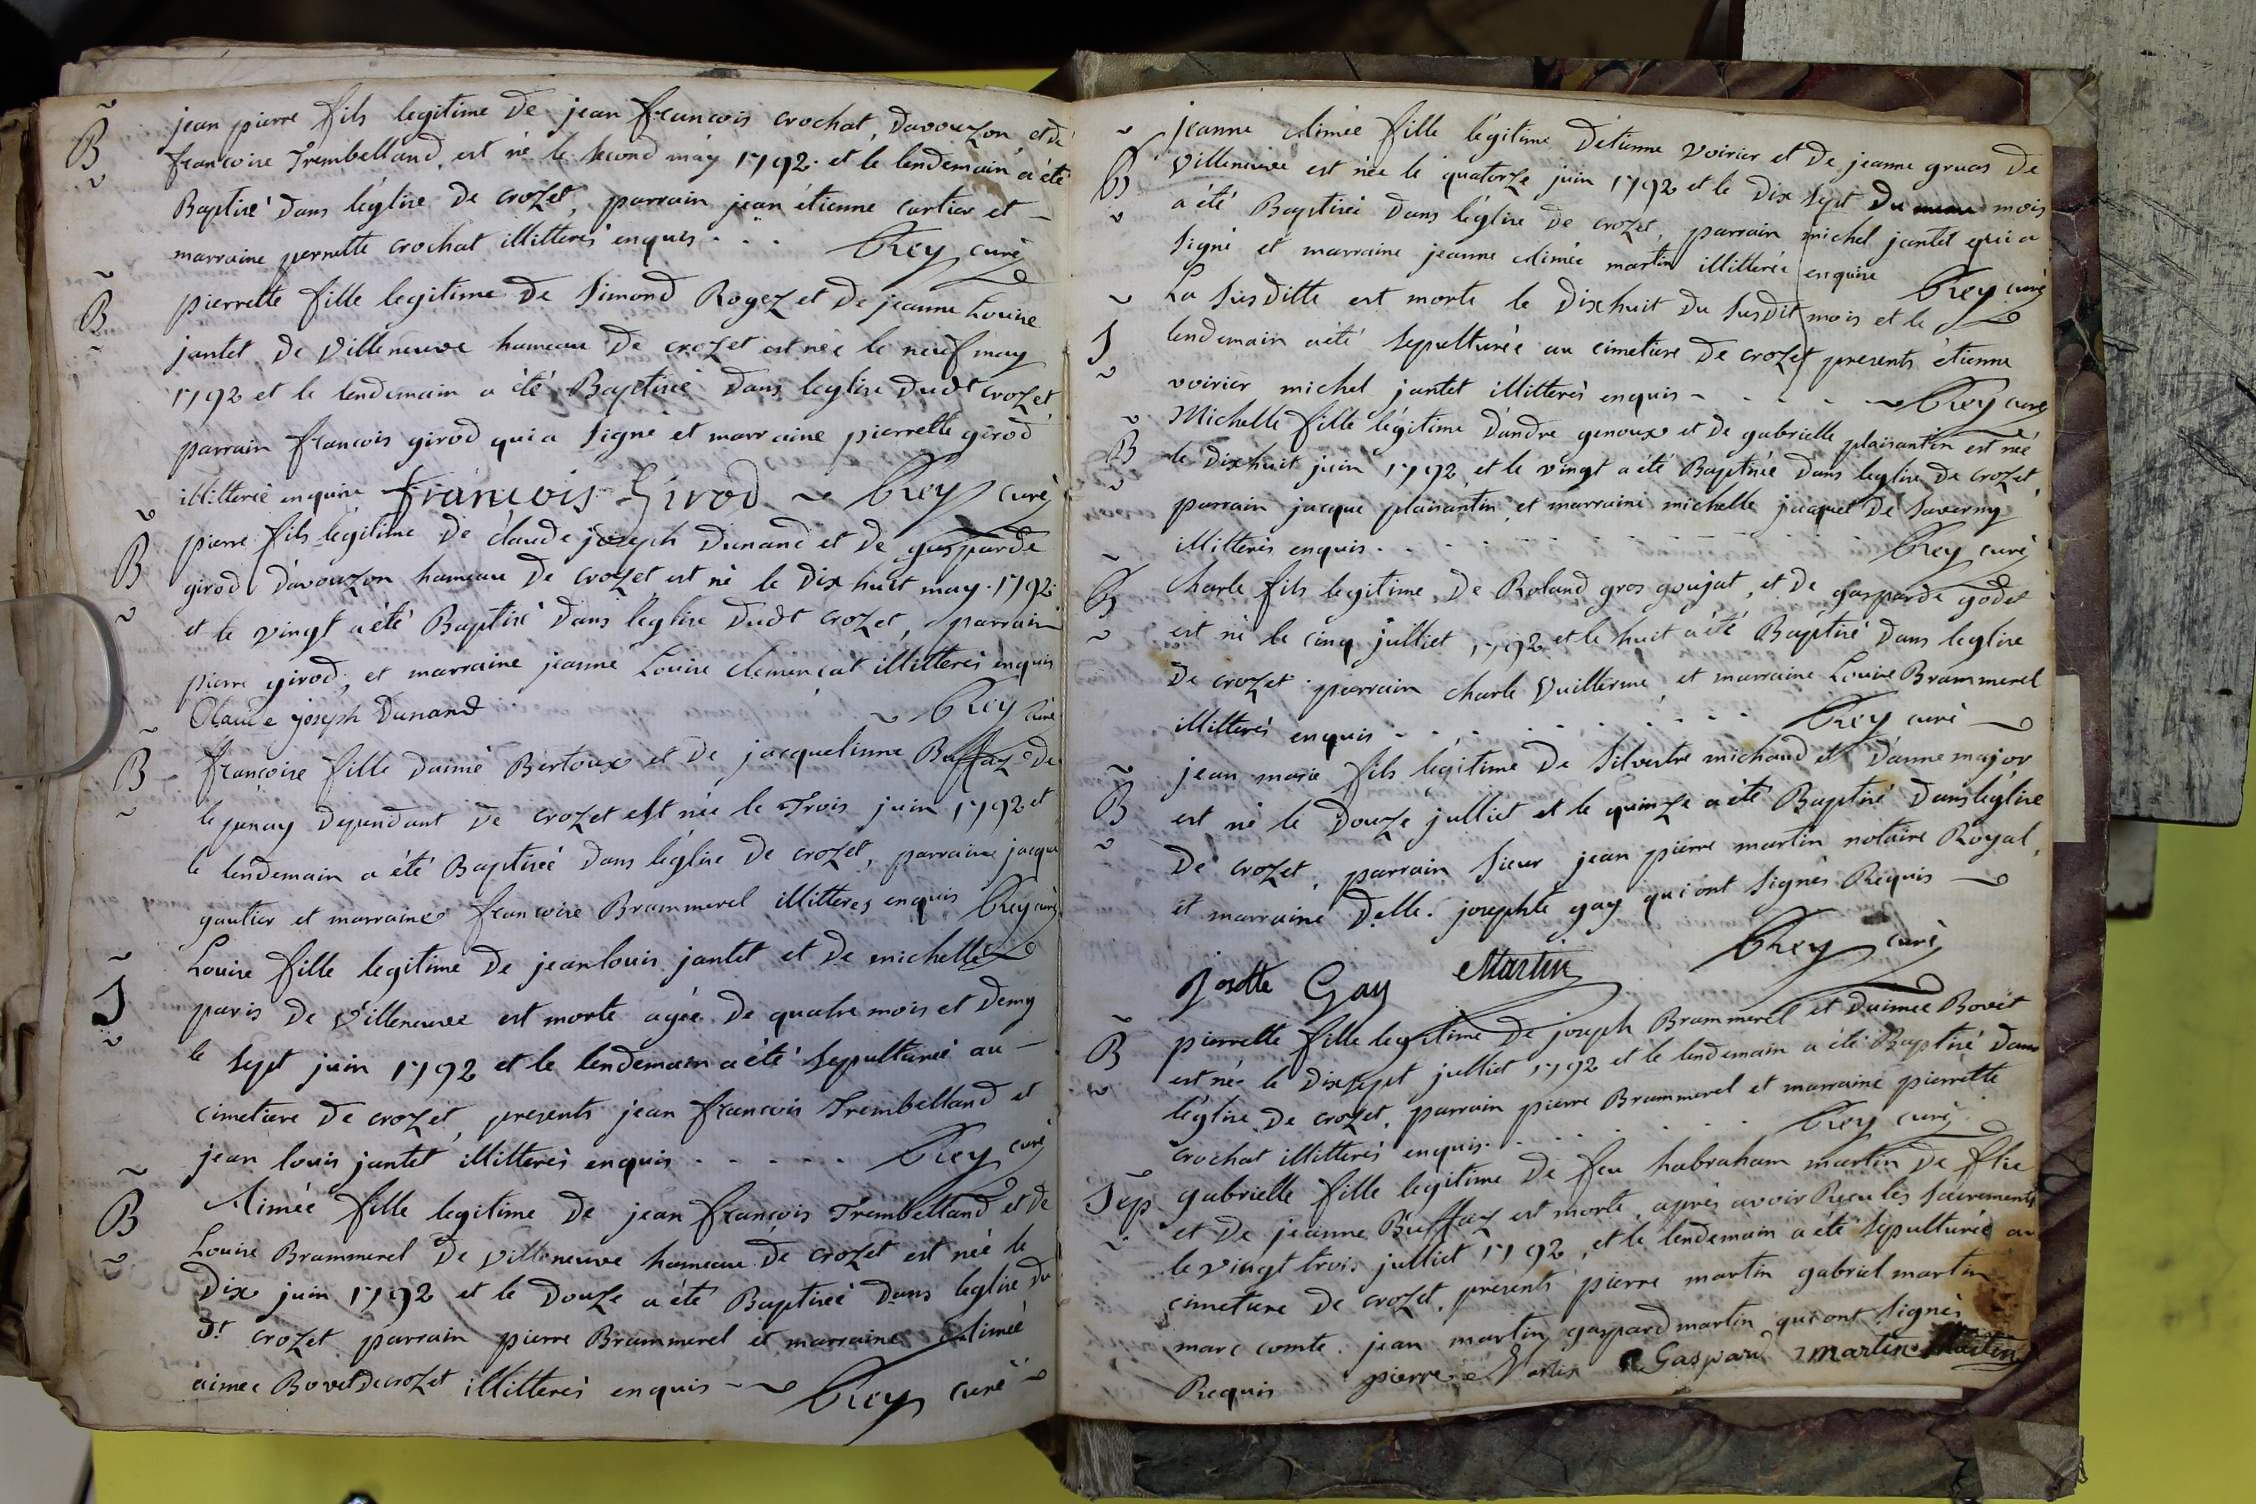 B
jean pierre fils legitime De jean francois crochat, Davouzon, et de
francoise Trembelland, est né le second may 1792. et le lendemain a été
Baptisé Dans léglise De crozet, parrain jean étienne cartier et —
marraine pernette crochat illitterés enquis . . . Rey curé
B
pierrette fille legitime De Simond Rogez et De jeanne Louise
jantet De Villeneuve hameau De crozet est née le neuf may
1792 et le lendemain a été Baptisée Dans leglise Dudt crozet
parrain francois girod qui a signé et marraine pierrette girod
illitterée enquise françois Girod ~ Rey curé
B
pierre fils legitime De claude joseph Dunand et De gasparde
girod Davouzon hameau De crozet est né le Dix huit may. 1792.
et le vingt a été Baptisé Dans leglise Dudt crozet, parrain
pierre girod, et marraine jeanne Louise clemencat illitterés enquis
Claude joseph Dunand ~ Rey curé
B
francoise fille Daimé Bertoux et De jacquelinne Buffaz De
le jenay Dependant De crozet est née le Trois juin 1792 et
le lendemain a été Baptisée Dans léglise De crozet, parraine jacque
gautier et marraine francoise Brammerel illitterés enquis Rey curé
S
Louise fille legitime De jean louis jantet et De michelle
paris De Villeneuve est morte agée De quatre mois et Demy
le sept juin 1792 et le lendemain a été sepulturée au —
cimetiere De crozet, presents jean francois Trembelland et
jean louis jantet illitterés enquis . . . . . Rey curé
B
Aimée fille legitime De jean françois Trembelland et De
Louise Brammerel De villeneuve hameau De crozet est née le
Dix juin 1792 et le Douze a été Baptisée Dans leglise du
Dt crozet parrain pierre Brammerel et marraine Aimée
aimée Bovet De crozet illitterés enquis — ~ Rey curé
B
jeanne Aimée fille légitime Détienne voirier et De jeanne gruas De
Villeneuve est née le quatorze juin 1792 et le Dix sept Du meme mois
a été Baptisée Dans léglise De crozet, parrain michel jantet qui a
signé et marraine jeanne Aimée martin illitterée enquise Rey curé
S
La susditte est morte le Dixhuit Du susdit mois et le
lendemain a été sepulturée au cimetiere De crozet presents étienne
voirier michel jantet illitterés enquis - - - - ~ Rey curé
B
Michelle fille légitime Dandre genoux et De gabrielle plaisantin est née
le Dixhuit juin 1792, et le vingt a été Baptisée Dans leglise De crozet,
parrain jacque plaisantin et marraine michelle jaquet De Saverny
illitterés enquis . . . . . . . . . . Rey curé
B
Charle fils legitime De Roland gros goujat, et De gasparde godet
est né le cinq julliet 1792 et le huit a été Baptisé Dans leglise
De crozet parrain charle Vuillerme, et marraine Louise Brammerel
illitterés enquis . . . . . . . . Rey curé
B
jean marie fils légitime De Silvestre michaud et Danne major
est né le Douze julliet et le quinze a été Baptisé Dans léglise
De crozet, parrain sieur jean pierre martin notaire Royal,
et marraine Delle. josephte gay qui ont signés Requis
josette Gay Martin Rey curé
B
pierrette fille legitime De joseph Brammerel et Daimée Bovet
est née le Dix sept julliet 1792 et le lendemain a été Baptisé Dans
léglise De crozet, parrain pierre Brammerel et marraine pierrette
crochat illitterés enquis . . . . . . . Rey curé
Sep
gabrielle fille legitime De feu habraham martin De flie
et De jeanne Buffaz est morte, après avoir Recu les sacrements
le vingt trois julliet 1792, et le lendemain a été sépulturée au
cimetiere De crozet, presents pierre martin gabriel martin
marc comte jean martin gaspard martin qui ont signés
Requis pierre Martin Gaspard martin Martin